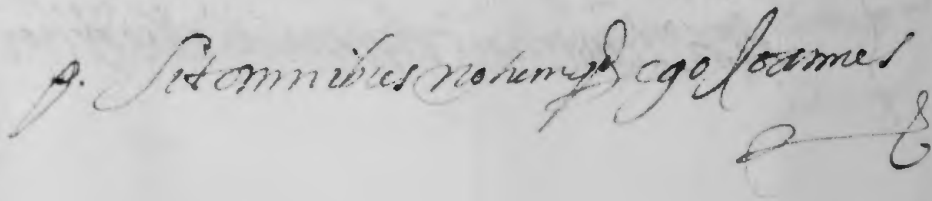 p. Sit omnibus notum qd ego Joannes